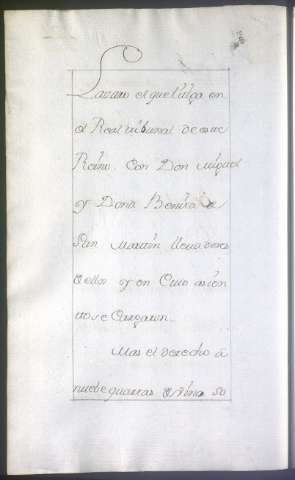 Lavaro el que litiga en
el Real tribunal de este
Reino. Con Don Miguel
y Doña Benita de
San Martin
y en Cuio asien
to se Cargaron.
Mas el derecho á
nuebe quartas